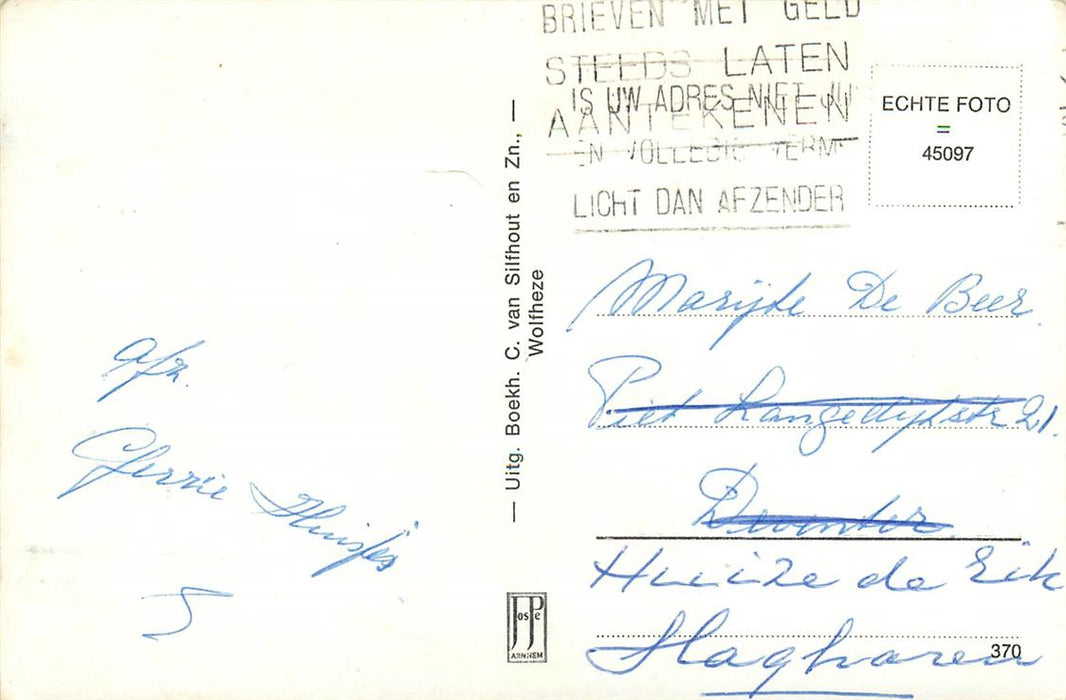 BRIEVEN MET GELD
STEEDS LATEN
AANTEKENEN
IS UW ADRES NIET
EN VOLLEDIG VERM
LICHT DAN AFZENDER
ECHTE FOTO
=
45097
— Uitg. Boekh. C. van Silfhout en Zn., —
Wolfheze
JosPe
ARNHEM
afz.
Gerrie Huisjes
Marijke De Beer.
Piet Langedijkstr 21.
Deventer.
Huize de Eik
Slagharen
370